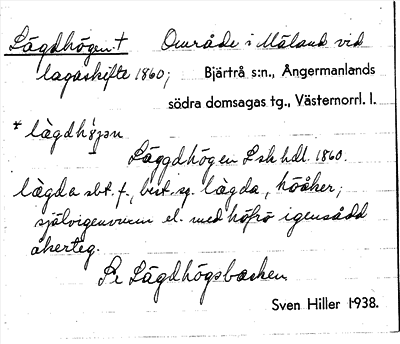 Lägdhögen † Område i Mäland vid
lagaskifte 1860; Bjärtrå s:n., Ångermanlands
södra domsagas tg., Västernorrl. l.
* lægdhögən
Läggdhögen Lsk hdl. 1860.
lægda sbt. f., best. sg. lægda, höåker;
självigenvuxen el. med höfrö igensådd
åkerteg.
Se Lägdhögsbacken.
Sven Hiller 1938.